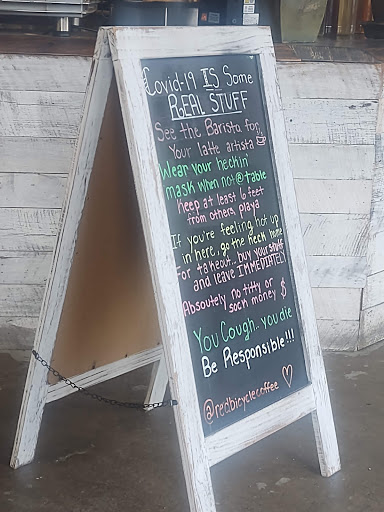 Covid-19 IS Some
REAL STUFF
See the Barista for
Your latte artista
Wear your heckin'
mask when not @ table
Keep at least 6 feet
from others, playa
If you're feeling hot up
in here, go the heck home
For takeout... buy your stuff
and leave IMMEDIATELY
Absoutely no titty or
sock money $
You Cough.. you die
Be Responsible!!!
@redbicyclecoffee